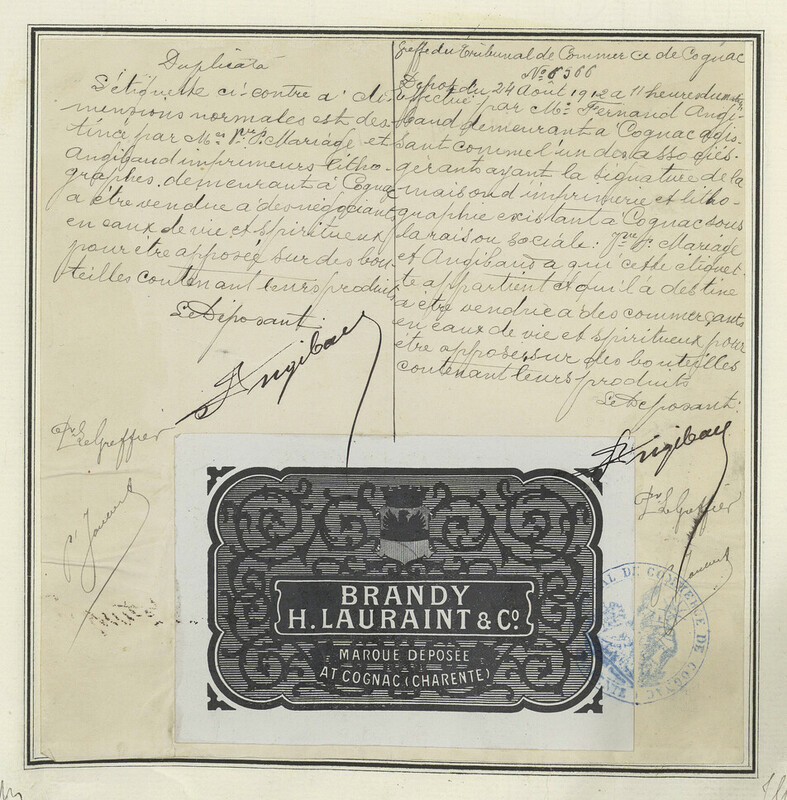 Duplicata
L'étiquette ci-contre à di-
mensions normales est des-
tinée par Mrs Vve P. Mariage et
Angibaud imprimeurs litho-
graphes, demeurant à Cognac
à être vendue à des négociants
en eaux de vie et spiritueux
pour être apposée sur des bou-
teilles contenant leurs produits
Le Déposant:
F Angibaud
Pr Le Greffier
Greffe du Tribunal de Commerce de Cognac
No 8366
Dépôt du 24 Août 1912 à 11 heures du matin
Effectué par Mr Fernand Angi-
baud demeurant à Cognac agis-
sant comme l'un des associés-
gérants ayant la signature de la
maison d'imprimerie et litho-
graphie existant à Cognac sous
la raison sociale: P. Mariage
et Angibaud à qui cette étiquet-
te appartient et qu'il a destine
à être vendue à des commerçants
en eaux de vie et spiritueux pour
être apposée sur des bouteilles
contenant leurs produits
Le Déposant:
F Angibaud
Pr Le Greffier
BRANDY
H. LAURAINT & Co.
MARQUE DEPOSÉE
AT COGNAC (CHARENTE)
AL DE COMMERCE DE COGNAC